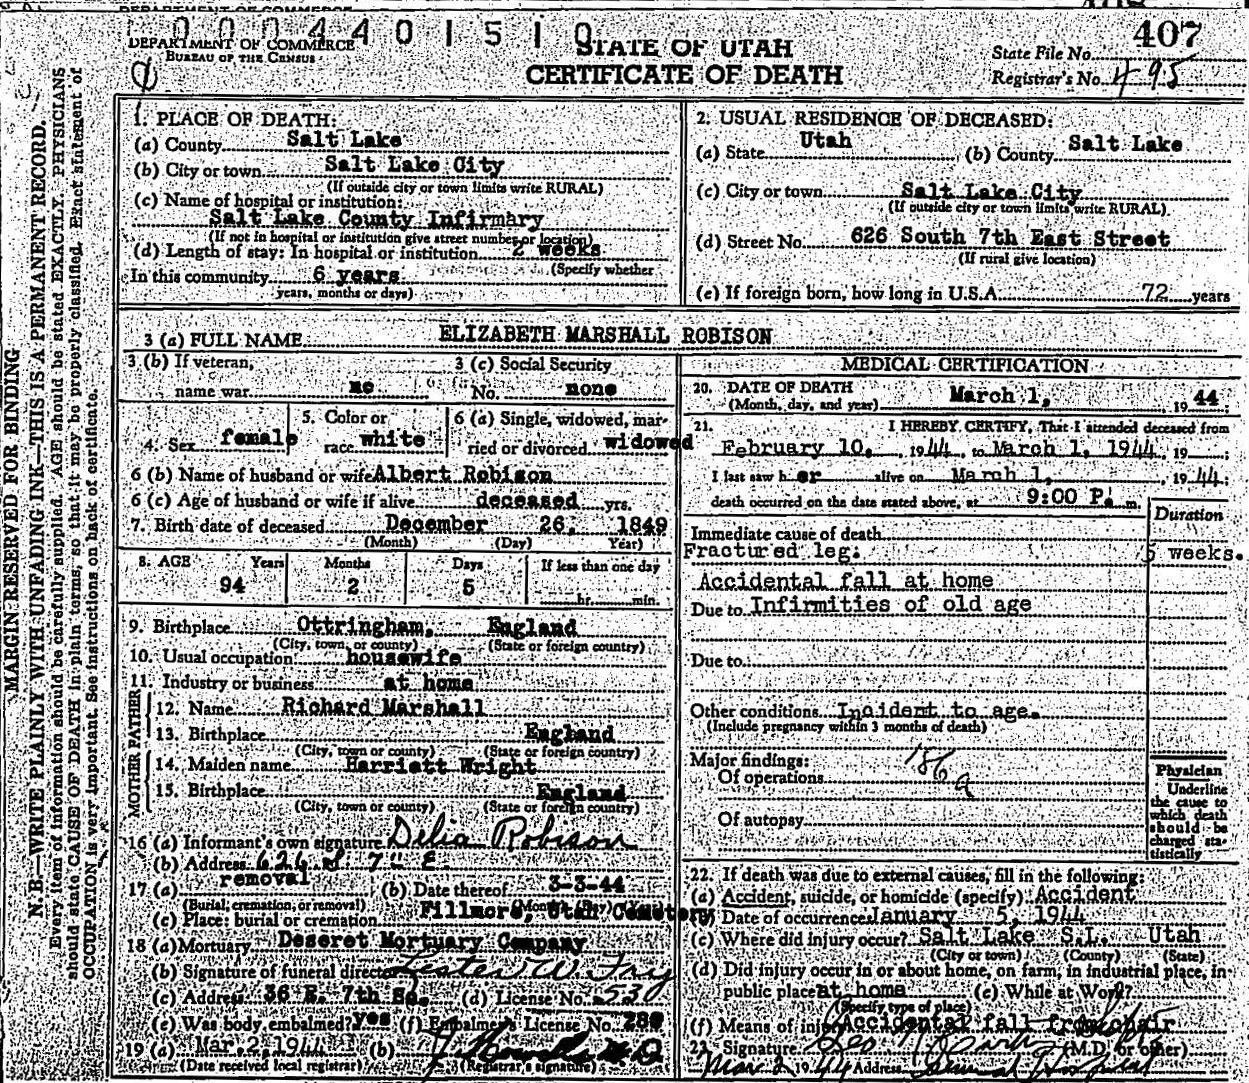 DEPARTMENT OF COMMERCE
000440 1510
DEPARTMENT OF COMMERCE
BUREAU OF THE CENSUS
STATE OF UTAH
CERTIFICATE OF DEATH
State File No. 407
Registrar's No. 495
MARGIN RESERVED FOR BINDING
N. B.—WRITE PLAINLY WITH UNFADING INK—THIS IS A PERMANENT RECORD.
Every item of information should be carefully supplied. AGE should be stated EXACTLY. PHYSICIANS
should state CAUSE OF DEATH in plain terms, so that it may be properly classified. Exact statement of
OCCUPATION is very important. See instructions on back of certificate.
1. PLACE OF DEATH:
(a) County Salt Lake
(b) City or town Salt Lake City
(If outside city or town limits write RURAL)
(c) Name of hospital or institution:
Salt Lake County Infirmary
(If not in hospital or institution give street number or location)
(d) Length of stay: In hospital or institution 2 weeks
(Specify whether
In this community 6 years
years, months or days)
2. USUAL RESIDENCE OF DECEASED:
(a) State Utah (b) County Salt Lake
(c) City or town Salt Lake City
(If outside city or town limits write RURAL)
(d) Street No. 626 South 7th East Street
(If rural give location)
(e) If foreign born, how long in U.S.A. 72 years
3 (a) FULL NAME ELIZABETH MARSHALL ROBISON
3 (b) If veteran, 3 (c) Social Security
name war no No. none
4. Sex female 5. Color or race white 6 (a) Single, widowed, married or divorced widowed
6 (b) Name of husband or wife Albert Robison
6 (c) Age of husband or wife if alive deceased yrs.
7. Birth date of deceased December 26, 1849
(Month) (Day) Year)
8. AGE Years Months Days If less than one day
94 2 5 hr. min.
9. Birthplace Ottringham, England
(City, town, or county) (State or foreign country)
10. Usual occupation housewife
11. Industry or business at home
FATHER
12. Name Richard Marshall
13. Birthplace England
(City, town or county) (State or foreign country)
MOTHER
14. Maiden name Harriett Wright
15. Birthplace England
(City, town or county) (State or foreign country)
16 (a) Informant's own signature Delia Robison
(b) Address 626 S 7" E
17 (a) removal (b) Date thereof 3-3-44
(Burial, cremation, or removal) (Month) (Day) (Year)
(c) Place: burial or cremation Fillmore, Utah Cemetery
18 (a) Mortuary Deseret Mortuary Company
(b) Signature of funeral director Lester W. Fry
(c) Address 36 E. 7th So. (d) License No. 530
(e) Was body embalmed? yes (f) Embalmer's License No. 289
19 (a) Mar. 2, 1944 (b) M D
(Date received local registrar) (Registrar's signature)
MEDICAL CERTIFICATION
20. DATE OF DEATH March 1, 19 44
(Month, day, and year)
21. I HEREBY CERTIFY, That I attended deceased from
February 10, 1944, to March 1, 1944, 19
I last saw h er alive on March 1, 19 44;
death occurred on the date stated above, at 9:00 P. m.
Duration
Immediate cause of death
Fractured leg: 5 weeks.
Accidental fall at home
Due to Infirmities of old age
Due to
Other conditions Incident to age.
(Include pregnancy within 3 months of death)
Major findings:
Of operations 186a
Of autopsy
Physician
Underline
the cause to
which death
should be
charged sta-
tistically
22. If death was due to external causes, fill in the following:
(a) Accident, suicide, or homicide (specify) Accident
(b) Date of occurrence January 5, 1944
(c) Where did injury occur? Salt Lake S.L. Utah
(City or town) (County) (State)
(d) Did injury occur in or about home, on farm, in industrial place, in
public place at home (e) While at Work?
(Specify type of place)
(f) Means of injury Accidental fall from chair
23. Signature (M.D. or other)
Mar 2 1944 Address General Hospital